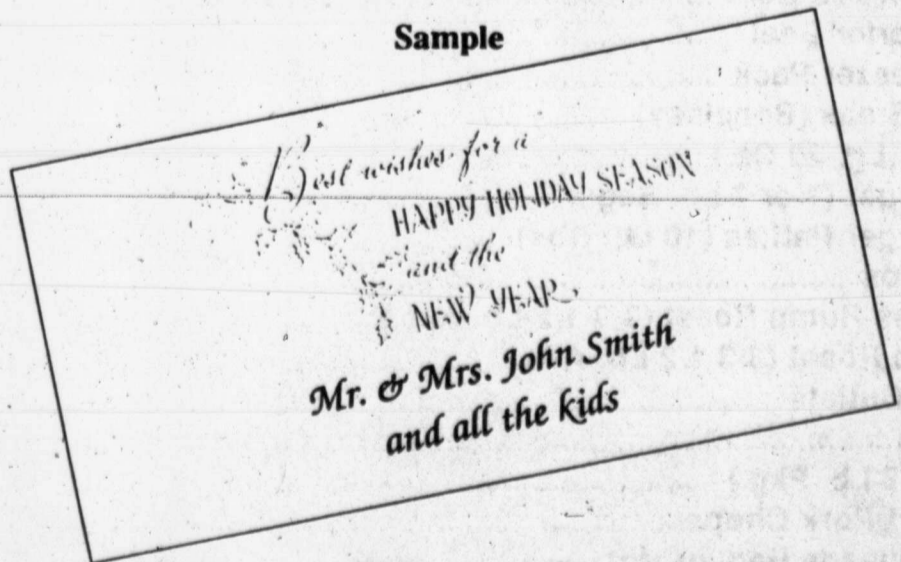 Sample
Best wishes for a
HAPPY HOLIDAY SEASON
and the
NEW YEAR
Mr. & Mrs. John Smith
and all the kids